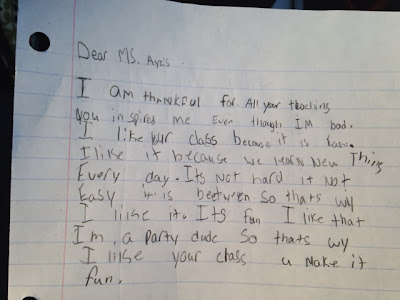 Dear MS. Ayers
I AM THANKFUL for. All your teaching
You inspired me Even though IM bad.
I like your class because it is
I like it because we learn New Thing
Every day. Its Not hard it Not
Easy it is beetween So thats wy
I like it. Its fun I like that
I'm, a Party dude So thats wy
I like your class u make it
fun.